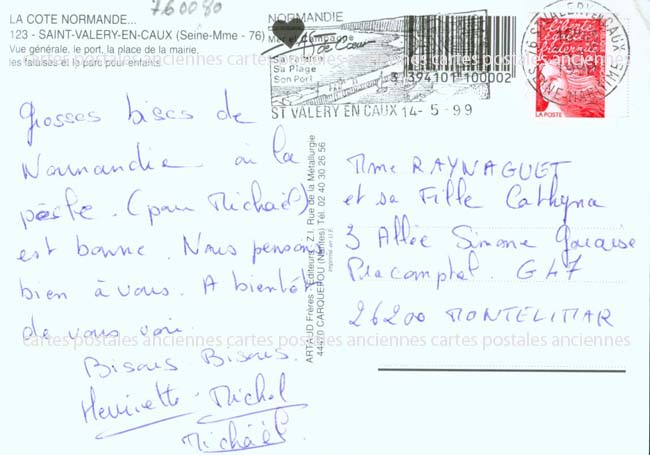 760080
LA COTE NORMANDE...
123 - SAINT-VALERY-EN-CAUX (Seine-Mme - 76)
Vue générale, le port, la place de la mairie,
les falaises et le parc pour enfants.
NORMANDIE
Mer et Campagne
de Cœur
Sa Falaise
Sa Plage
Son Port
3 394101 100002
ST VALERY EN CAUX 14-5-99
76 ST VALERY-EN-CAUX
SEINE-MARITIME
Liberté
égalité
fraternité
LA POSTE
Grosses bises de
Normandie où la
pêche. (pour Michaël)
est bonne. Nous pensons
bien à vous. A bientôt
de vous voir.
Bisous Bisous.
Henriette Michel
Michaël
ARTAUD Frères - Éditeurs - Z.I. Rue de la Métallurgie
44470 CARQUEFOU (Nantes) Tél. 02 40 30 26 56
Imprimé en U.E.
Mme RAYNAGUET
et sa Fille Cathyna
3 Allée Simone
G47
26200 MONTELIMAR
cartes postales anciennes cartes postales anciennes cartes postales anciennes